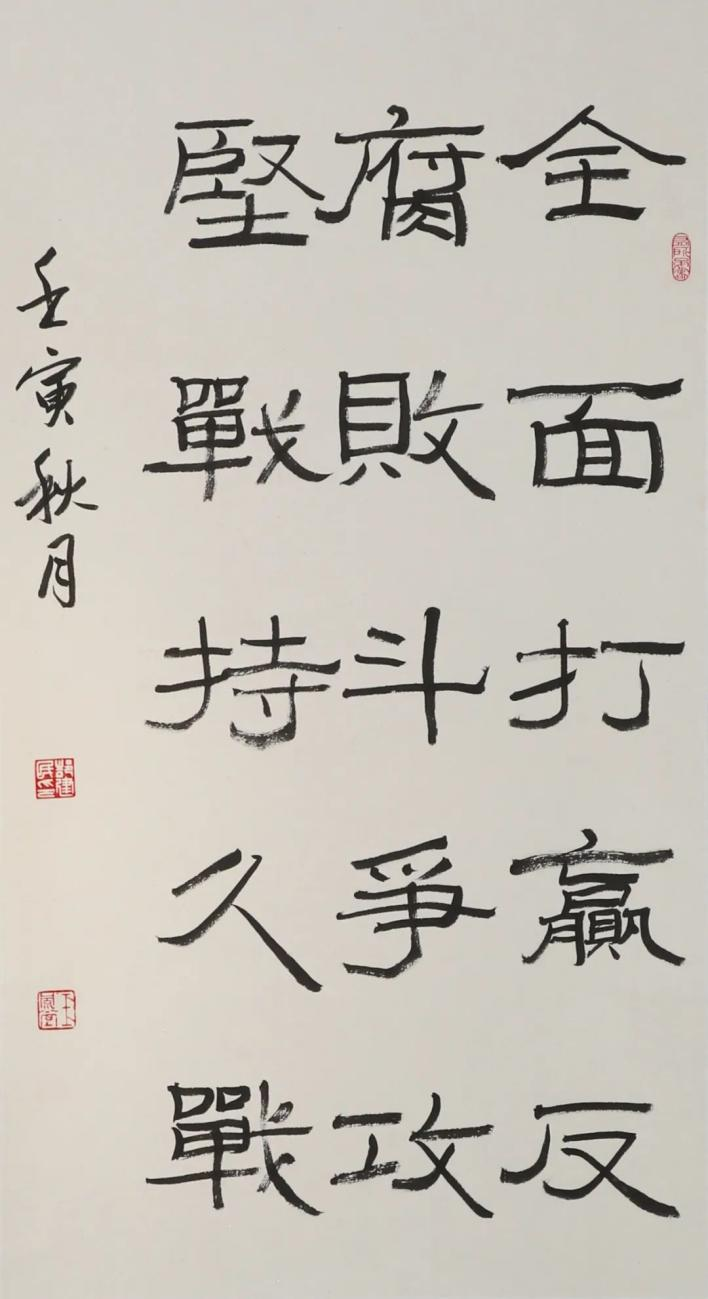 全面打贏反
腐敗斗爭攻
堅戰持久戰
壬寅秋月